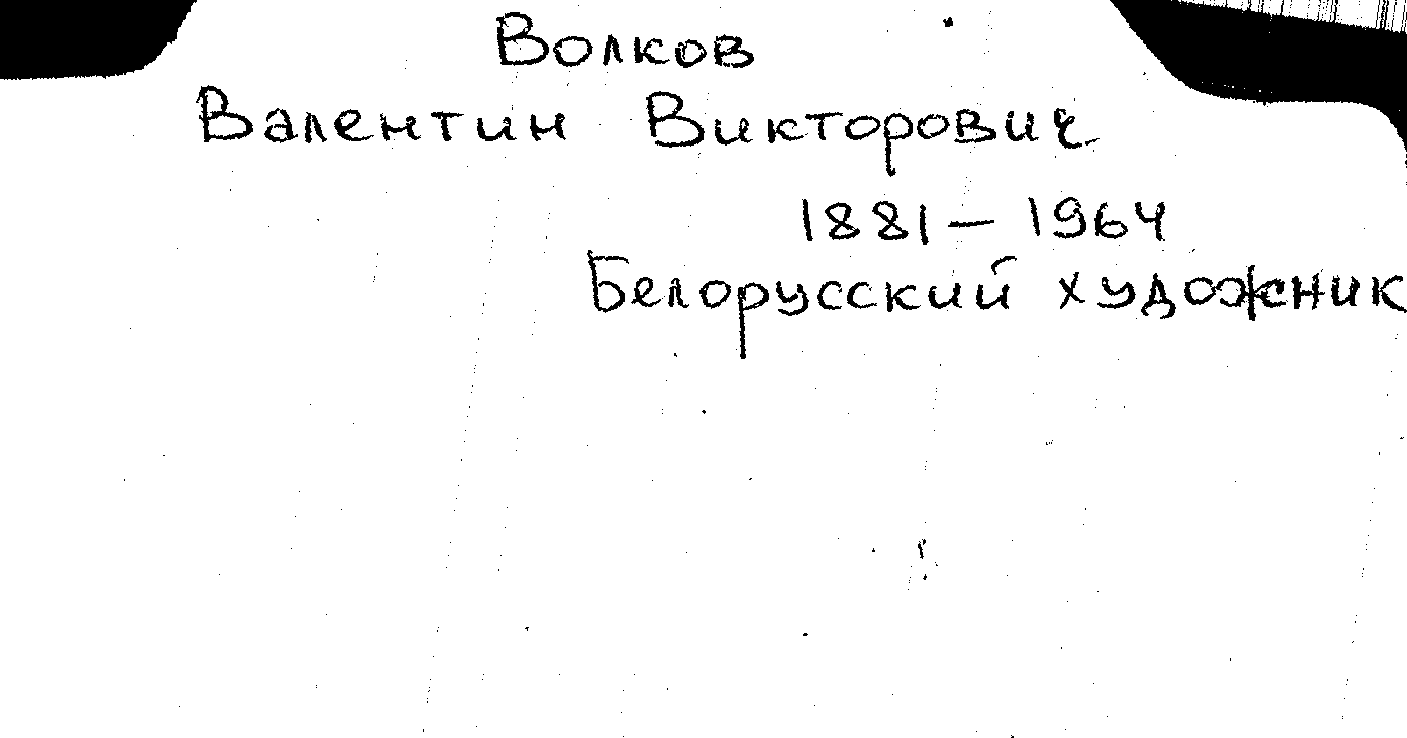 Волков
Валентин Викторович
1881 – 1964
Белорусский художник